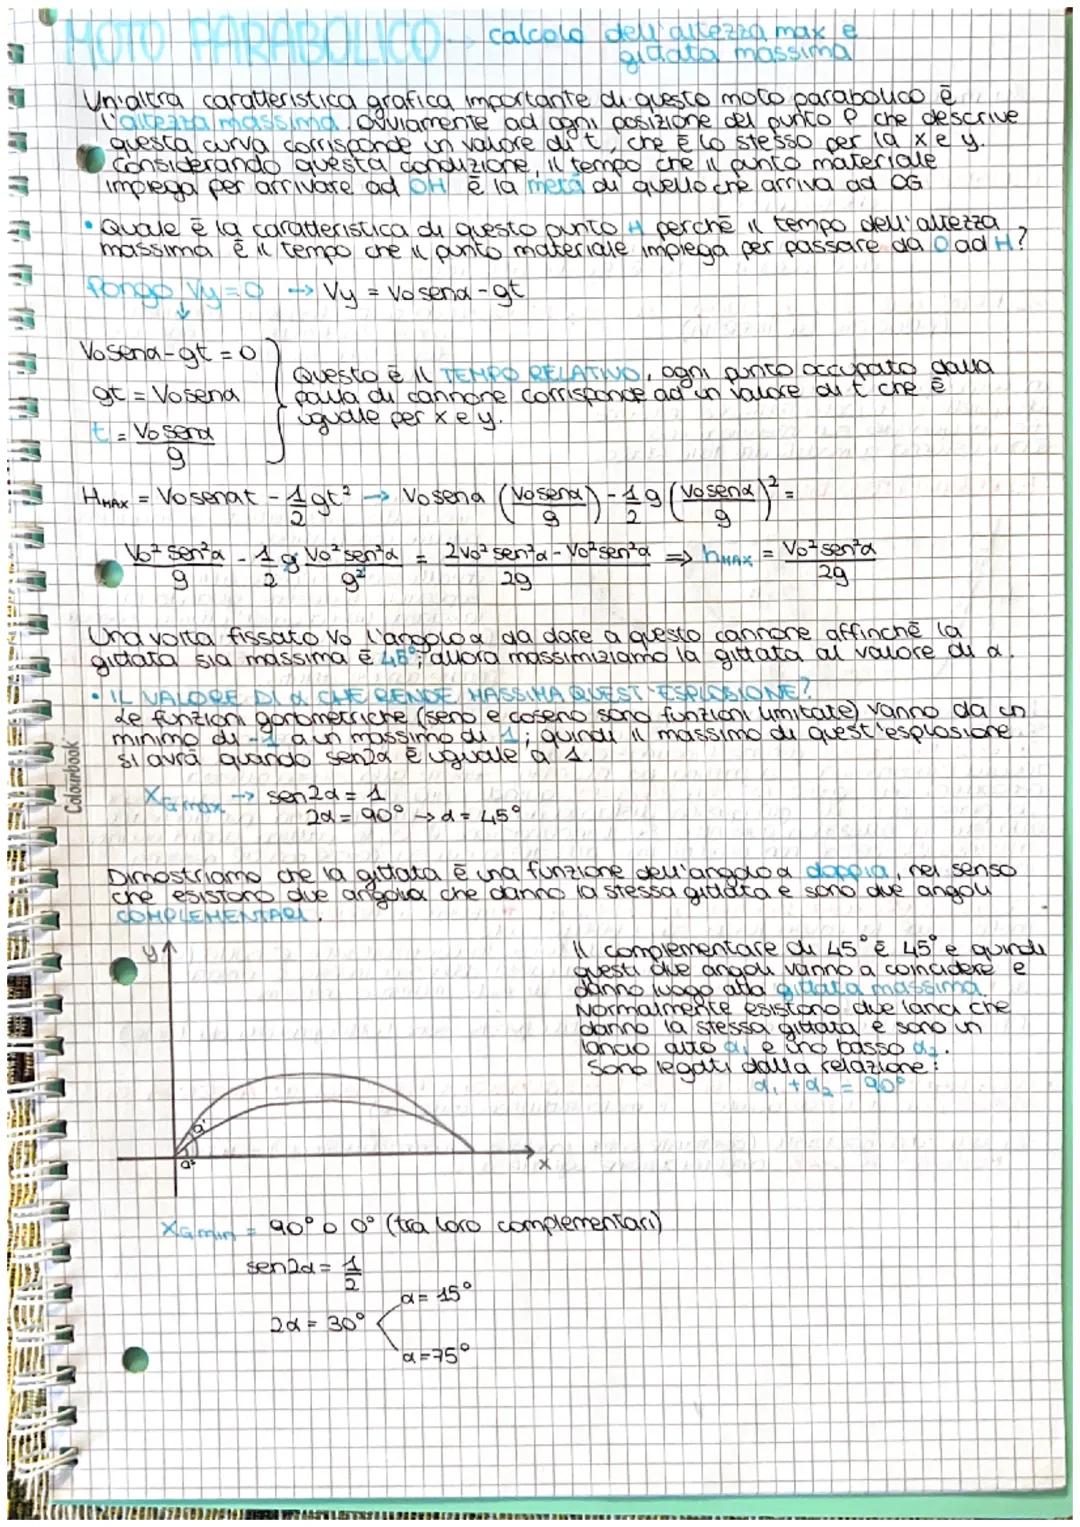 MOTO PARABOLICO → calcolo dell'altezza max e
gittata massima
Un'altra caratteristica grafica importante di questo moto parabolico è
l'altezza massima. Ovviamente ad ogni posizione del punto P che descrive
questa curva corrisponde un valore di t, che è lo stesso per la x e y.
Considerando questa conduzione, il tempo che il punto materiale
impiega per arrivare ad OH è la metà di quello che arriva ad OG
• Quale è la caratteristica di questo punto H perché il tempo dell'altezza
massima è il tempo che il punto materiale impiega per passare da O ad H?
Pongo Vy=0 → Vy = Vo senα - gt
↓
Vo senα - gt = 0
gt = Vo senα
t = Vo senα / g
Questo è il TEMPO RELATIVO, ogni punto occupato dalla
palla di cannone corrisponde ad un valore di t che è
uguale per x e y.
HMAX = Vo senαt - 1/2 gt² → Vo senα (Vo senα / g) - 1/2 g (Vo senα / g)² =
Vo² sen²α / g - 1/2 g Vo² sen²α / g² = 2Vo² sen²α - Vo² sen²α / 2g ⇒ hMAX = Vo² sen²α / 2g
Una volta fissato Vo l'angolo α da dare a questo cannone affinché la
gittata sia massima è 45°; allora massimiziamo la gittata al valore di α.
• IL VALORE DI α CHE RENDE MASSIMA QUEST'ESPLOSIONE?
Le funzioni goniometriche (seno e coseno sono funzioni limitate) vanno da un
minimo di -1 a un massimo di 1; quindi il massimo di quest'esplosione
si avrà quando sen2α è uguale a 1.
Colourbook
XG max → sen2α = 1
2α = 90° → α = 45°
Dimostriamo che la gittata è una funzione dell'angolo α doppia, nel senso
che esistono due angoli che danno la stessa gittata e sono due angoli
COMPLEMENTARI.
Il complementare di 45° è 45° e quindi
questi due angoli vanno a coincidere e
danno luogo alla gittata massima.
Normalmente esistono due lanci che
danno la stessa gittata e sono un
lancio alto α₁ e uno basso α₂.
Sono legati dalla relazione:
α₁ + α₂ = 90°
y
x
XG min = 90° o 0° (tra loro complementari)
sen2α = 1/2
α = 15°
2α = 30°
α = 75°